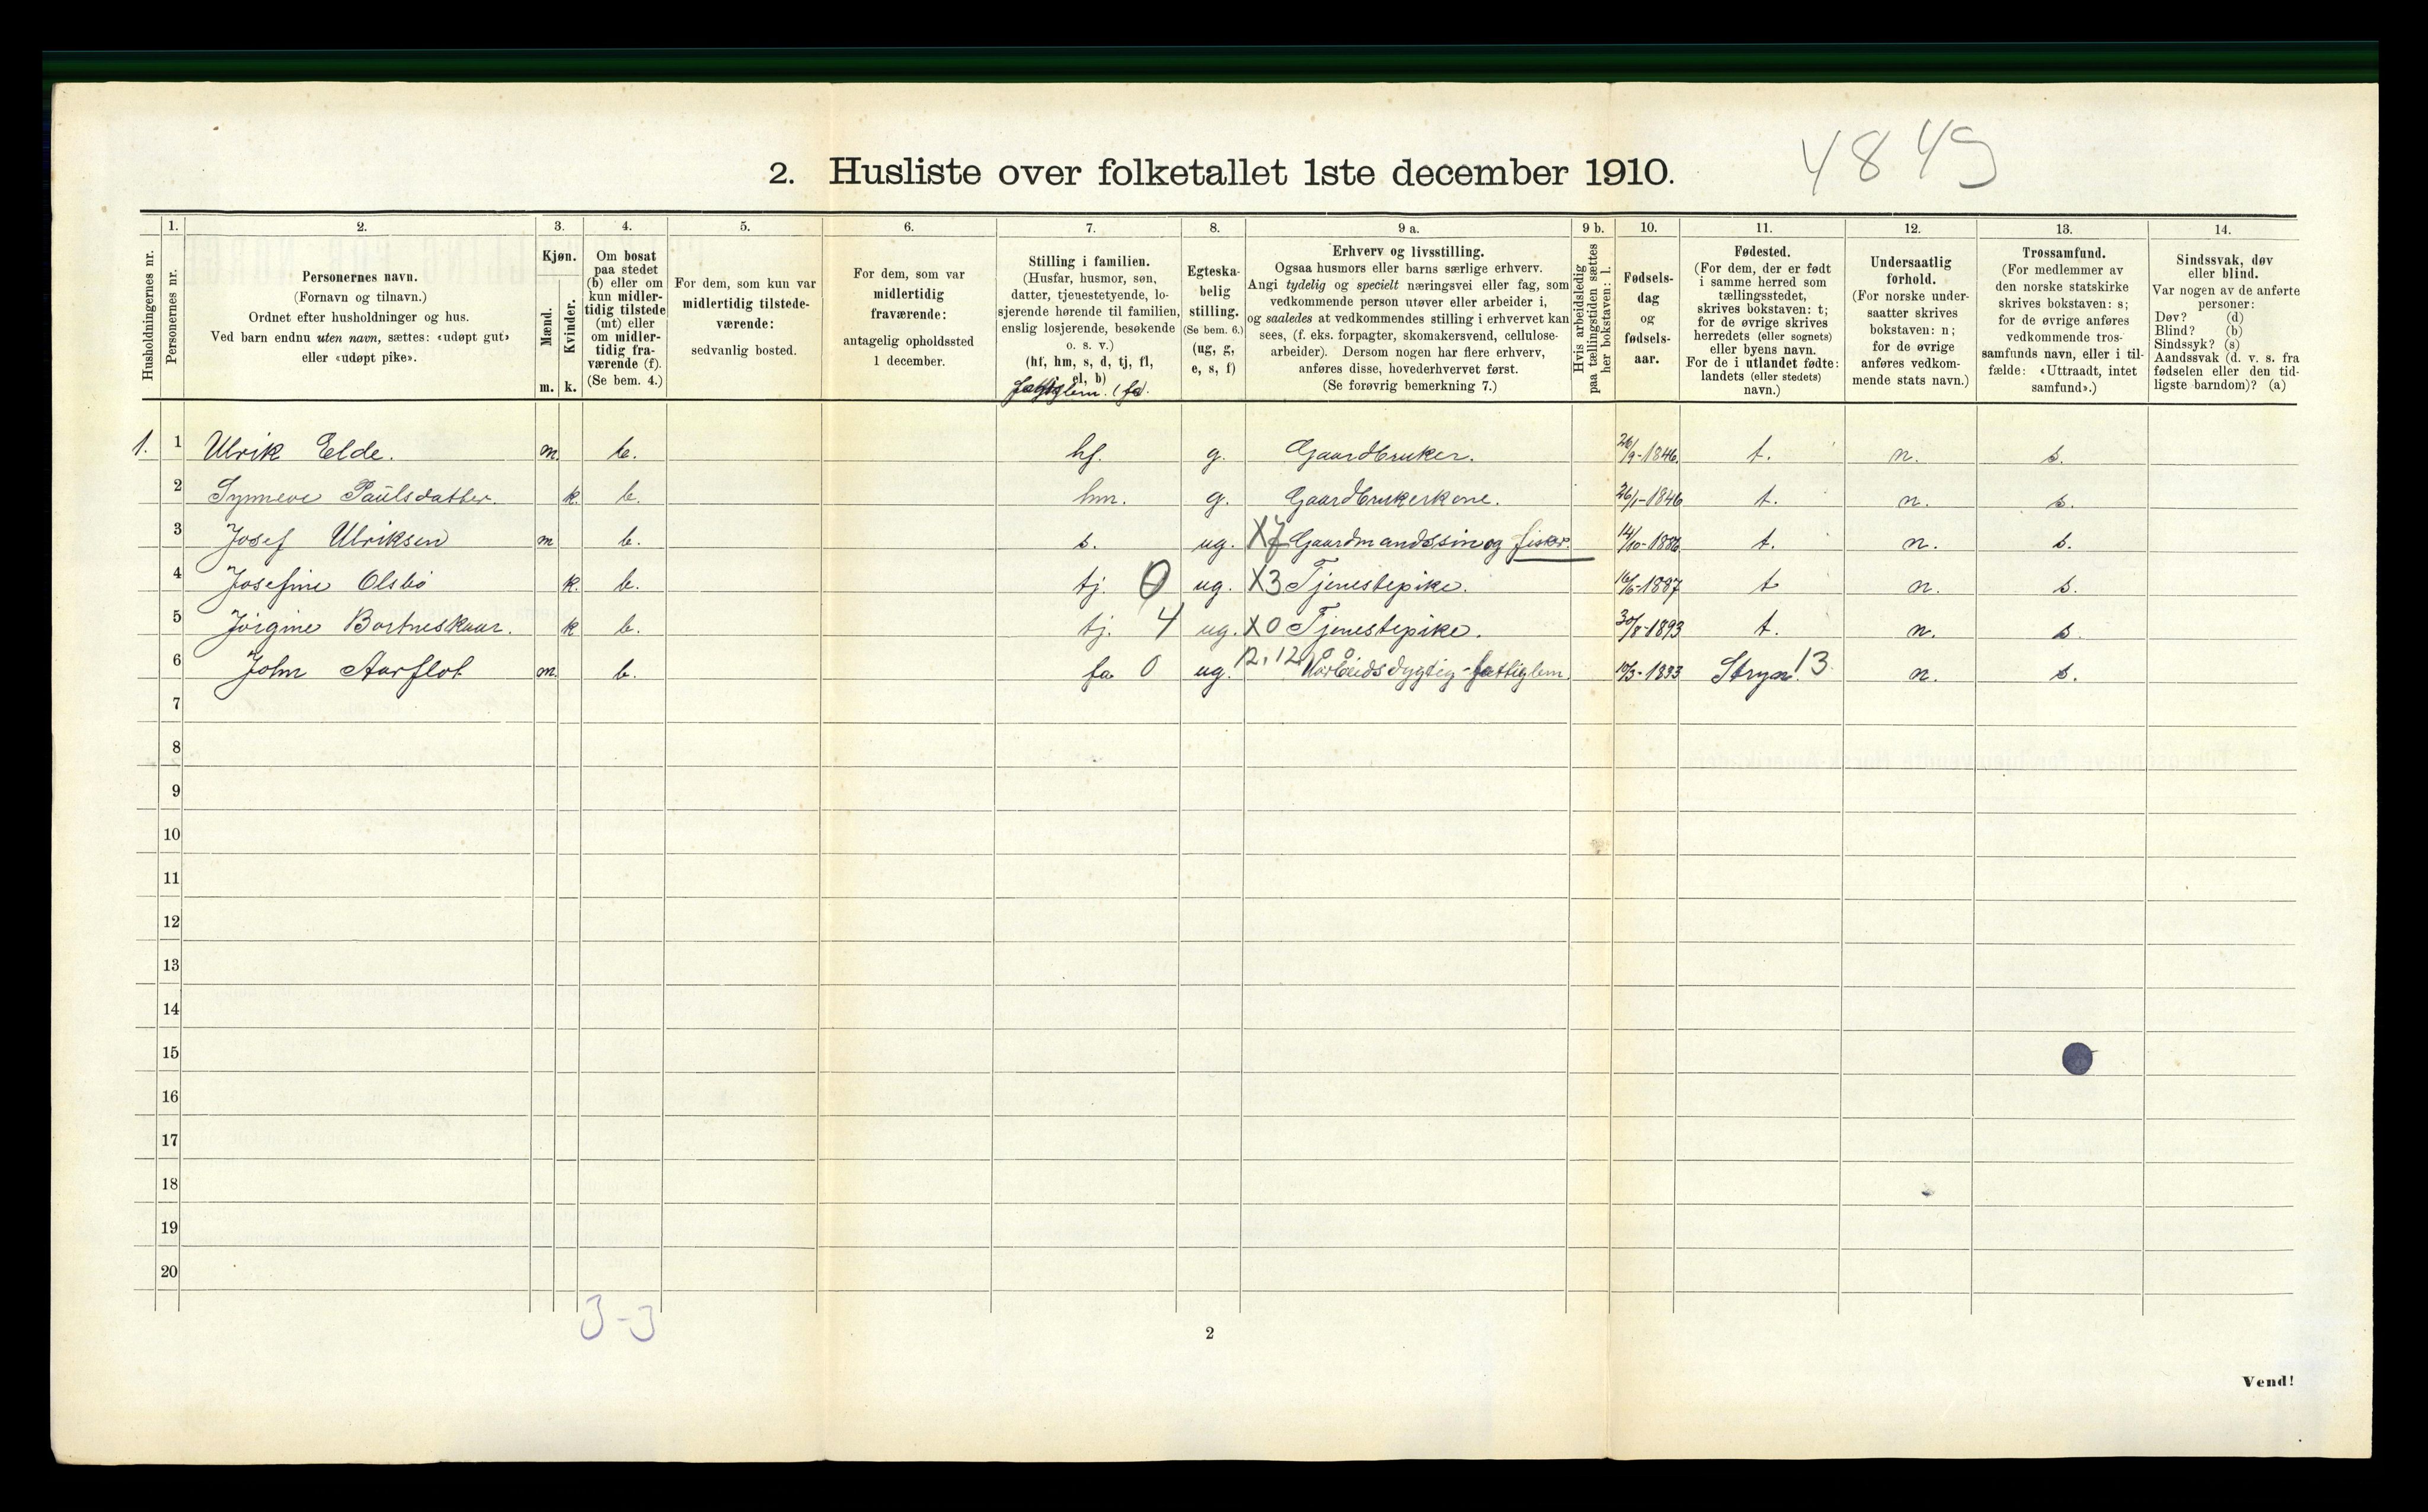 4849
2. Husliste over folketallet 1ste december 1910.
Husholdningernes nr.
1.
Personernes nr.
2.
Personernes navn.
(Fornavn og tilnavn.)
Ordnet efter husholdninger og hus.
Ved barn endnu uten navn, sættes: «udøpt gut»
eller «udøpt pike».
3.
Kjøn.
Mænd.
Kvinder.
m. k.
4.
Om bosat
paa stedet
(b) eller om
kun midler-
tidig tilstede
(mt) eller
om midler-
tidig fra-
værende (f).
(Se bem. 4.)
5.
For dem, som kun var
midlertidig tilstede-
værende:
sedvanlig bosted.
6.
For dem, som var
midlertidig
fraværende:
antagelig opholdssted
1 december.
7.
Stilling i familien.
(Husfar, husmor, søn,
datter, tjenestetyende, lo-
sjerende hørende til familien,
enslig losjerende, besøkende
o. s. v.)
(hf, hm, s, d, tj, fl,
el, b)
fattiglem. (fa).
8.
Egteska-
belig
stilling.
(Se bem. 6.)
(ug, g,
e, s, f)
9 a.
Erhverv og livsstilling.
Ogsaa husmors eller barns særlige erhverv.
Angi tydelig og specielt næringsvei eller fag, som
vedkommende person utøver eller arbeider i,
og saaledes at vedkommendes stilling i erhvervet kan
sees, (f. eks. forpagter, skomakersvend, cellulose-
arbeider). Dersom nogen har flere erhverv,
anføres disse, hovederhvervet først.
(Se forøvrig bemerkning 7.)
9 b.
Hvis arbeidsledig
paa tællingstiden sættes
her bokstaven: l.
10.
Fødsels-
dag
og
fødsels-
aar.
11.
Fødested.
(For dem, der er født
i samme herred som
tællingsstedet,
skrives bokstaven: t;
for de øvrige skrives
herredets (eller sognets)
eller byens navn.
For de i utlandet fødte:
landets (eller stedets)
navn.)
12.
Undersaatlig
forhold.
(For norske under-
saatter skrives
bokstaven: n;
for de øvrige
anføres vedkom-
mende stats navn.)
13.
Trossamfund.
(For medlemmer av
den norske statskirke
skrives bokstaven: s;
for de øvrige anføres
vedkommende tros-
samfunds navn, eller i til-
fælde: «Uttraadt, intet
samfund».)
14.
Sindssvak, døv
eller blind.
Var nogen av de anførte
personer:
Døv? (d)
Blind? (b)
Sindssyk? (s)
Aandssvak (d. v. s. fra
fødselen eller den tid-
ligste barndom)? (a)
1. 1 Ulrik Elde. m. b. hf. g. Gaardbruker. 26/9-1846. t. n. s.
2 Synneve Paulsdatter. k. b. hm. g. Gaardbrukerkone. 26/1-1846 t. n. s.
3 Josef Ulriksen m b. s. ug. X7 Gaardmandssin og fisker. 14/10-1886 t. n. s.
4 Josefine Olsbö k. b. tj. 0 ug. X3 Tjenestepike. 16/6-1887 t n. s.
5 Jörgine Bortneskaar. k b. tj. 4 ug. X0 Tjenestepike. 30/8-1893 t. n. s.
6 John Aarflot m. b. fa 0 ug. 12,12 Uarbeidsdygtig-fattiglem. 10/3-1833 Stryn! 13 n. s.
7
8
9
10
11
12
13
14
15
16
17
18
19
20
3-3
2
Vend!